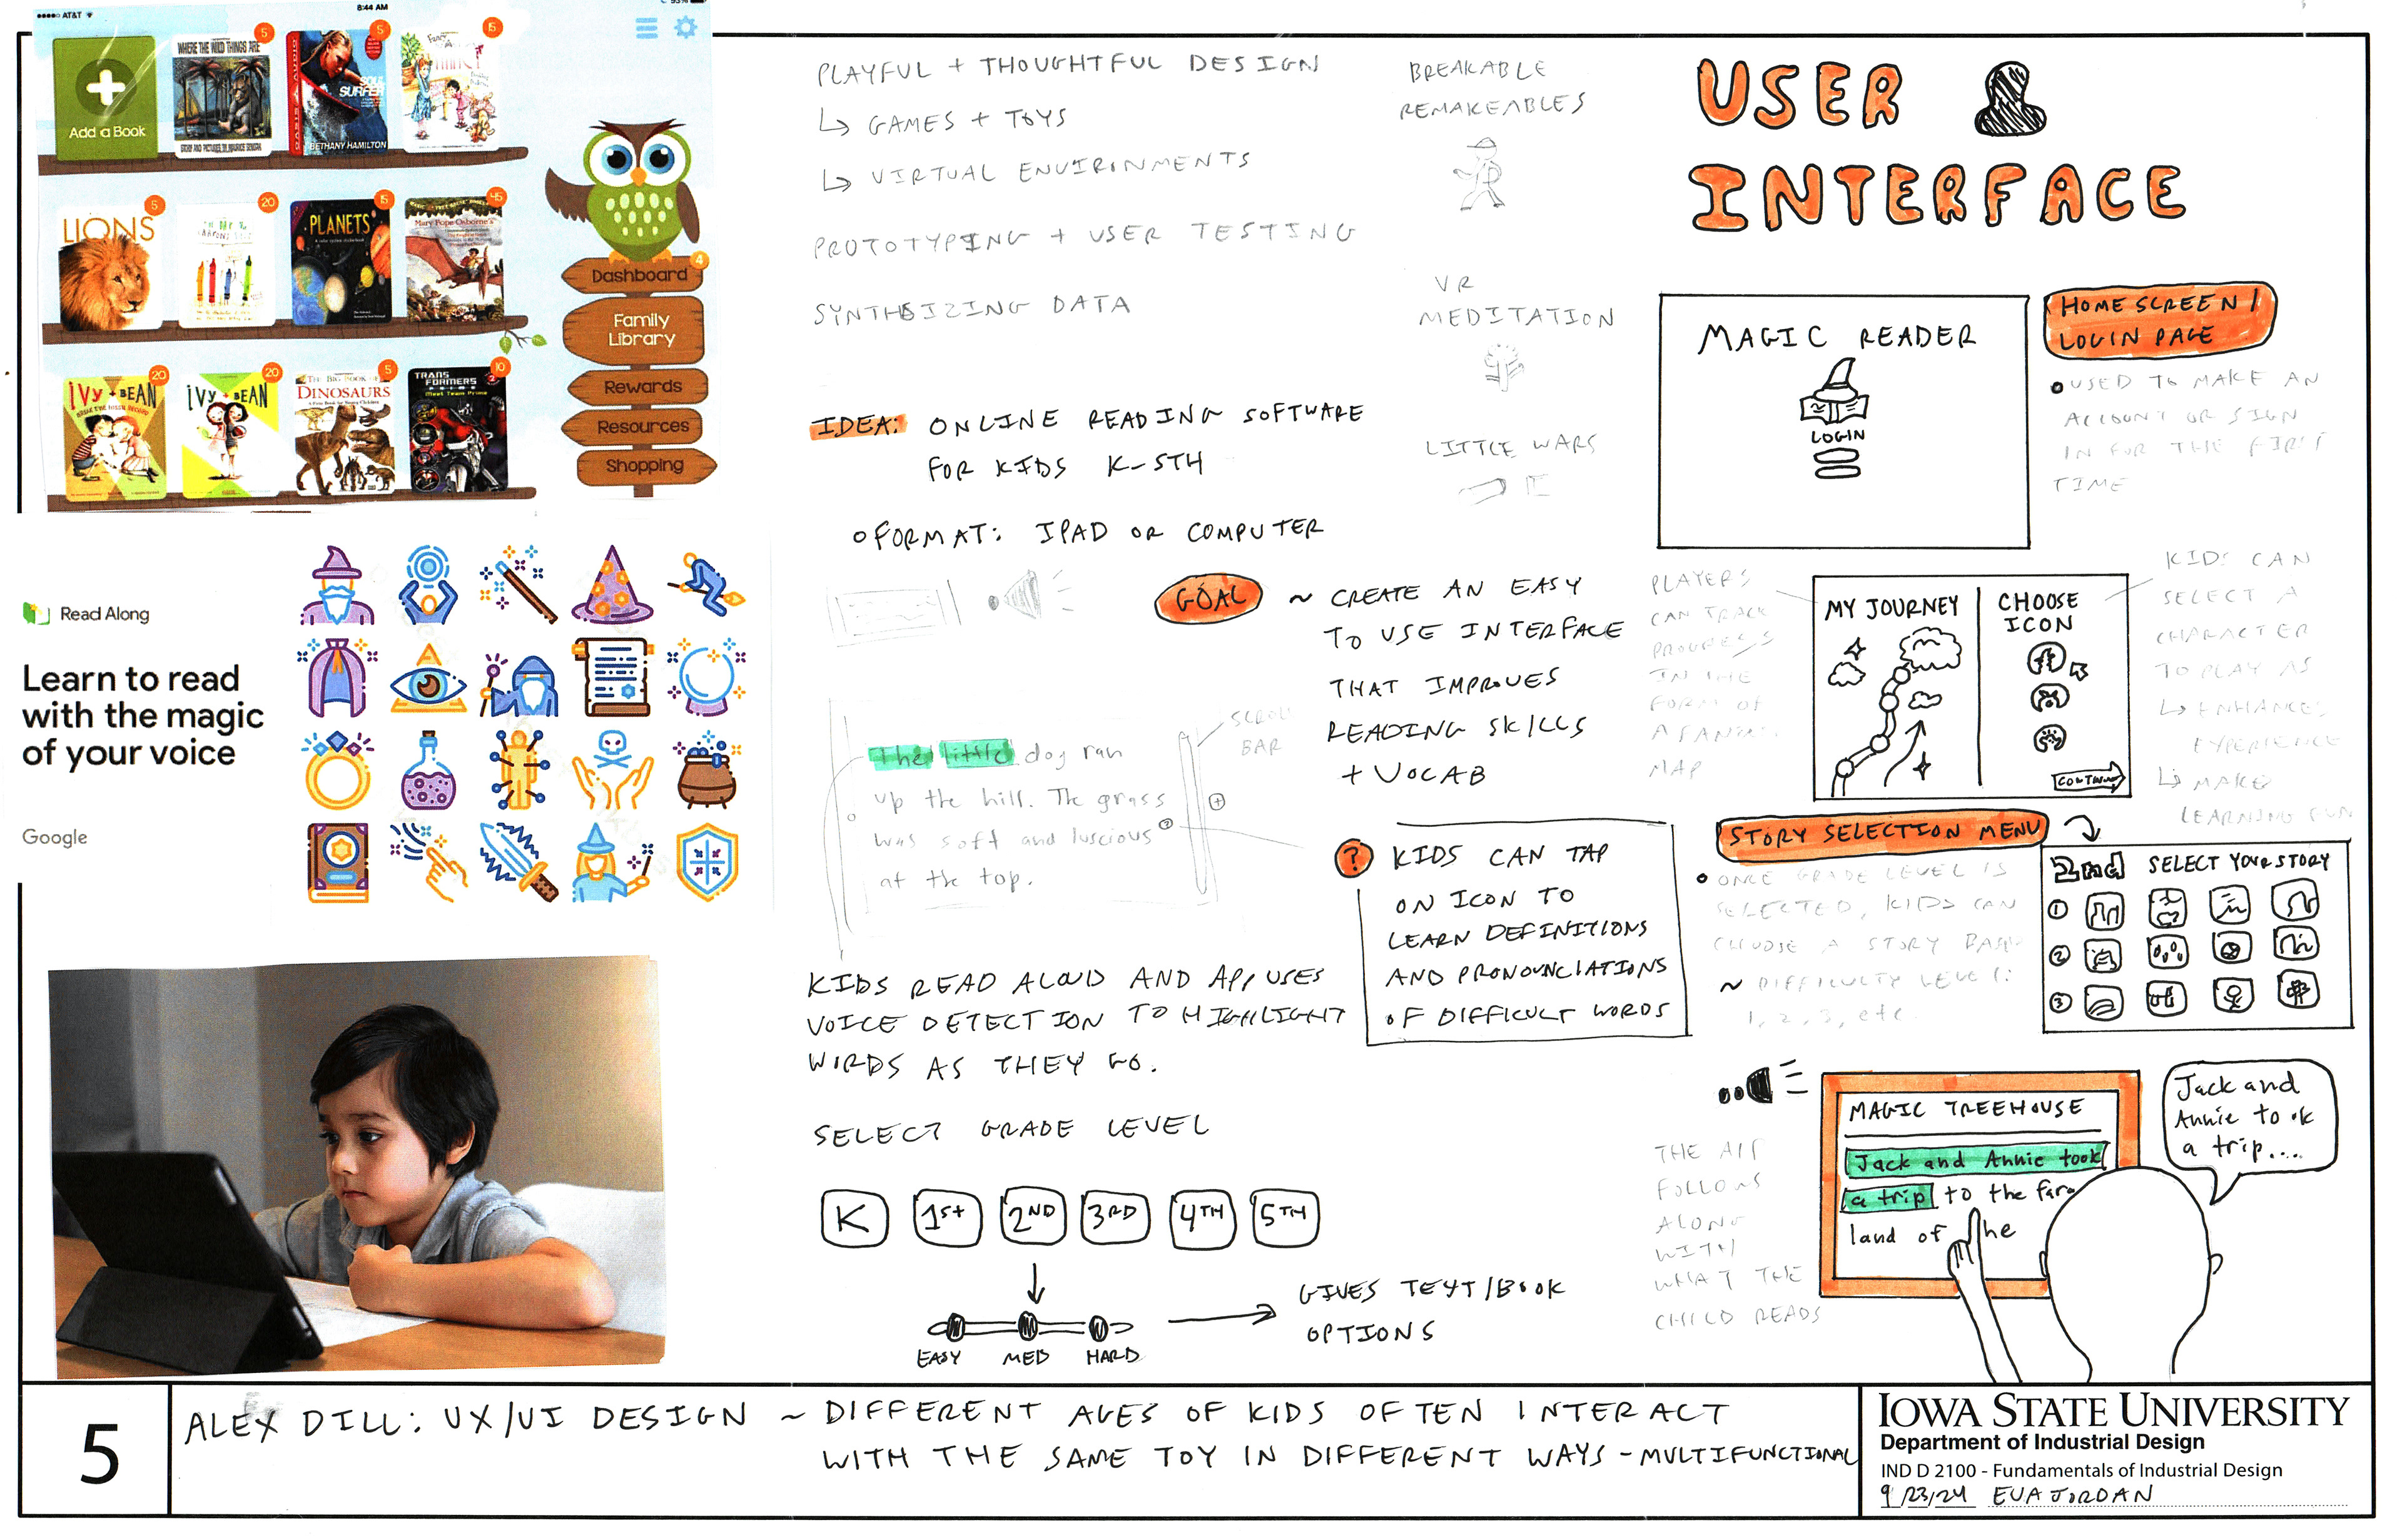 AT&T
8:44 AM
93%
Add a Book
5
WHERE THE WILD THINGS ARE
STORY AND PICTURES BY MAURICE SENDAK
5
SOUL
SURFER
BETHANY HAMILTON
15
5
LIONS
20
15
PLANETS
45
Mary Pope Osborne
20
IVY + BEAN
20
IVY + BEAN
5
THE BIG BOOK OF
DINOSAURS
10
TRANS
FORMERS
PRIME
Meet Team Prime
Dashboard
4
Family
Library
Rewards
Resources
Shopping
Read Along
Learn to read
with the magic
of your voice
Google
PLAYFUL + THOUGHTFUL DESIGN
↳ GAMES + TOYS
↳ VIRTUAL ENVIRONMENTS
PROTOTYPING + USER TESTING
SYNTHESIZING DATA
BREAKABLE
REMAKEABLES
VR
MEDITATION
LITTLE WARS
IDEA: ONLINE READING SOFTWARE
FOR KIDS K-5TH
○ FORMAT: IPAD OR COMPUTER
GOAL ~ CREATE AN EASY
TO USE INTERFACE
THAT IMPROVES
READING SKILLS
+ VOCAB
SCROLL
BAR
The little dog ran
up the hill. The grass
was soft and luscious ?
at the top.
? KIDS CAN TAP
ON ICON TO
LEARN DEFINITIONS
AND PRONOUNCIATIONS
OF DIFFICULT WORDS
KIDS READ ALOUD AND APP USES
VOICE DETECTION TO HIGHLIGHT
WORDS AS THEY GO.
SELECT GRADE LEVEL
K 1ST 2ND 3RD 4TH 5TH
EASY MED HARD
GIVES TEXT/BOOK
OPTIONS
USER
INTERFACE
MAGIC READER
LOGIN
HOME SCREEN /
LOGIN PAGE
• USED TO MAKE AN
ACCOUNT OR SIGN
IN FOR THE FIRST
TIME
PLAYERS
CAN TRACK
PROGRESS
IN THE
FORM OF
A FANTASY
MAP
MY JOURNEY
CHOOSE
ICON
CONTINUE
KIDS CAN
SELECT A
CHARACTER
TO PLAY AS
↳ ENHANCES
EXPERIENCE
↳ MAKE
LEARNING FUN
STORY SELECTION MENU
• ONCE GRADE LEVEL IS
SELECTED, KIDS CAN
CHOOSE A STORY
~ DIFFICULTY LEVEL:
1, 2, 3, etc.
2nd SELECT YOUR STORY
1
2
3
THE APP
FOLLOWS
ALONG
WITH
WHAT THE
CHILD READS
MAGIC TREEHOUSE
Jack and Annie took
a trip to the
land of the
Jack and
Annie took
a trip....
5
ALEX DILL: UX/UI DESIGN ~ DIFFERENT AGES OF KIDS OFTEN INTERACT
WITH THE SAME TOY IN DIFFERENT WAYS - MULTIFUNCTIONAL
IOWA STATE UNIVERSITY
Department of Industrial Design
IND D 2100 - Fundamentals of Industrial Design
9/23/24 EVA JORDAN